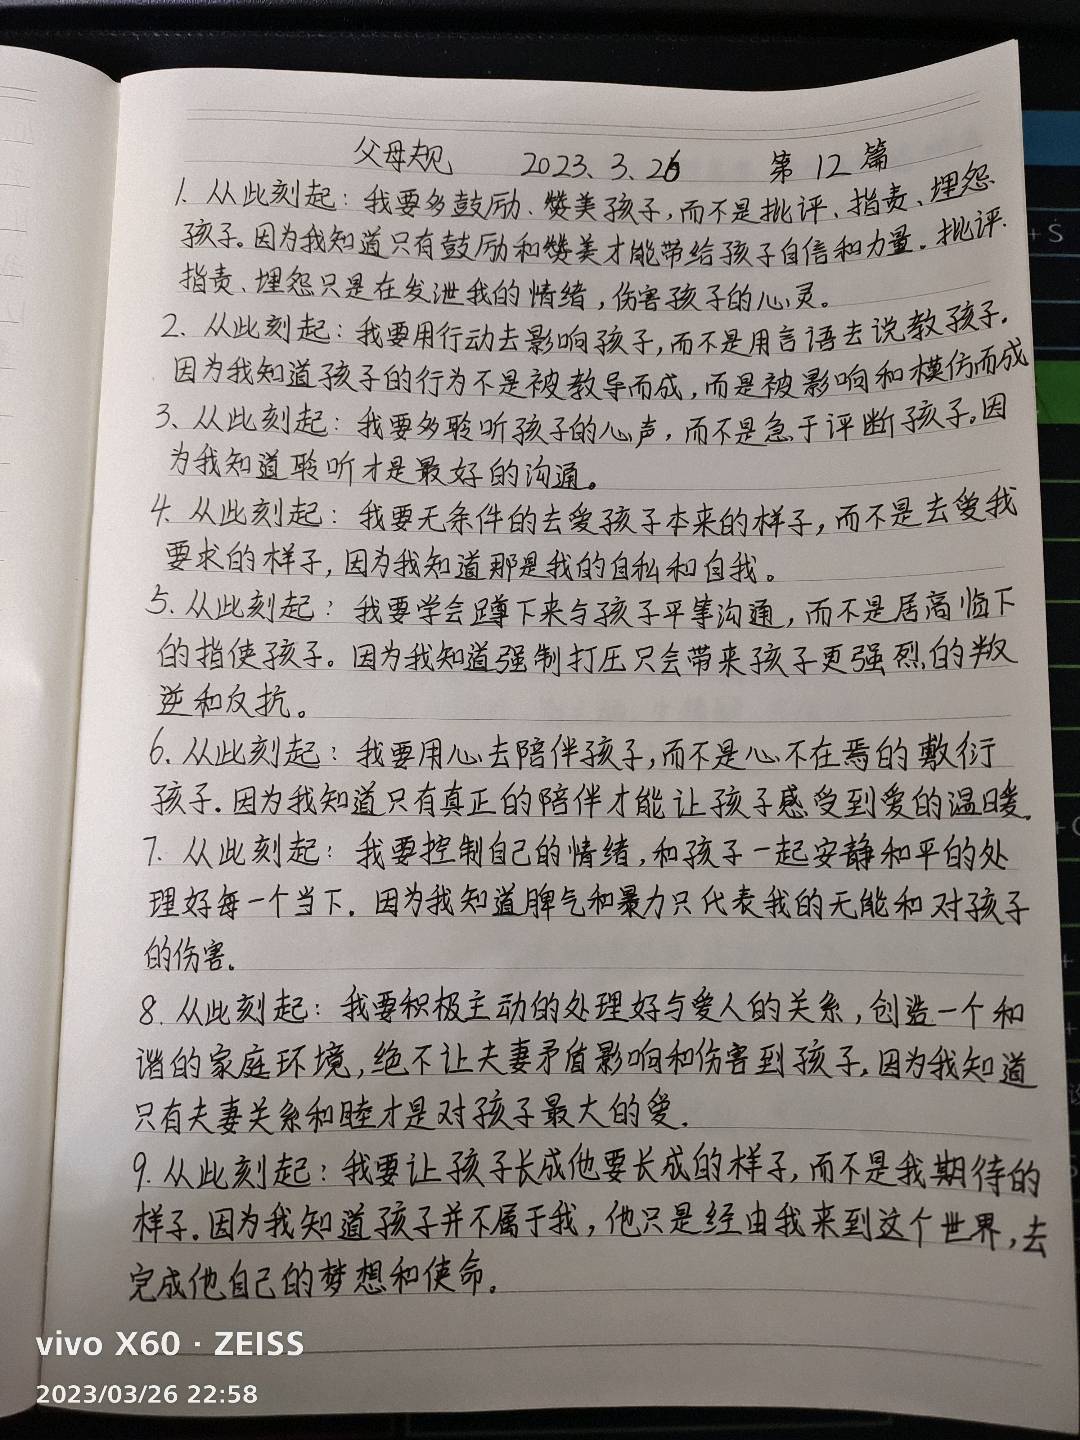 父母规 2023.3.26 第12篇
1. 从此刻起：我要多鼓励、赞美孩子，而不是批评、指责、埋怨
孩子。因为我知道只有鼓励和赞美才能带给孩子自信和力量。批评.
指责、埋怨只是在发泄我的情绪，伤害孩子的心灵。
2、从此刻起：我要用行动去影响孩子，而不是用言语去说教孩子.
因为我知道孩子的行为不是被教导而成，而是被影响和模仿而成
3、从此刻起：我要多聆听孩子的心声，而不是急于评断孩子。因
为我知道聆听才是最好的沟通。
4. 从此刻起：我要无条件的去爱孩子本来的样子，而不是去爱我
要求的样子，因为我知道那是我的自私和自我。
5. 从此刻起：我要学会蹲下来与孩子平等沟通，而不是居高临下
的指使孩子。因为我知道强制打压只会带来孩子更强烈的叛
逆和反抗。
6. 从此刻起：我要用心去陪伴孩子，而不是心不在焉的敷衍
孩子. 因为我知道只有真正的陪伴才能让孩子感受到爱的温暖.
7. 从此刻起：我要控制自己的情绪，和孩子一起安静和平的处
理好每一个当下. 因为我知道脾气和暴力只代表我的无能和对孩子
的伤害.
8. 从此刻起：我要积极主动的处理好与爱人的关系，创造一个和
谐的家庭环境，绝不让夫妻矛盾影响和伤害到孩子. 因为我知道
只有夫妻关系和睦才是对孩子最大的爱.
9. 从此刻起：我要让孩子长成他要长成的样子，而不是我期待的
样子. 因为我知道孩子并不属于我，他只是经由我来到这个世界，去
完成他自己的梦想和使命.
vivo X60 · ZEISS
2023/03/26 22:58